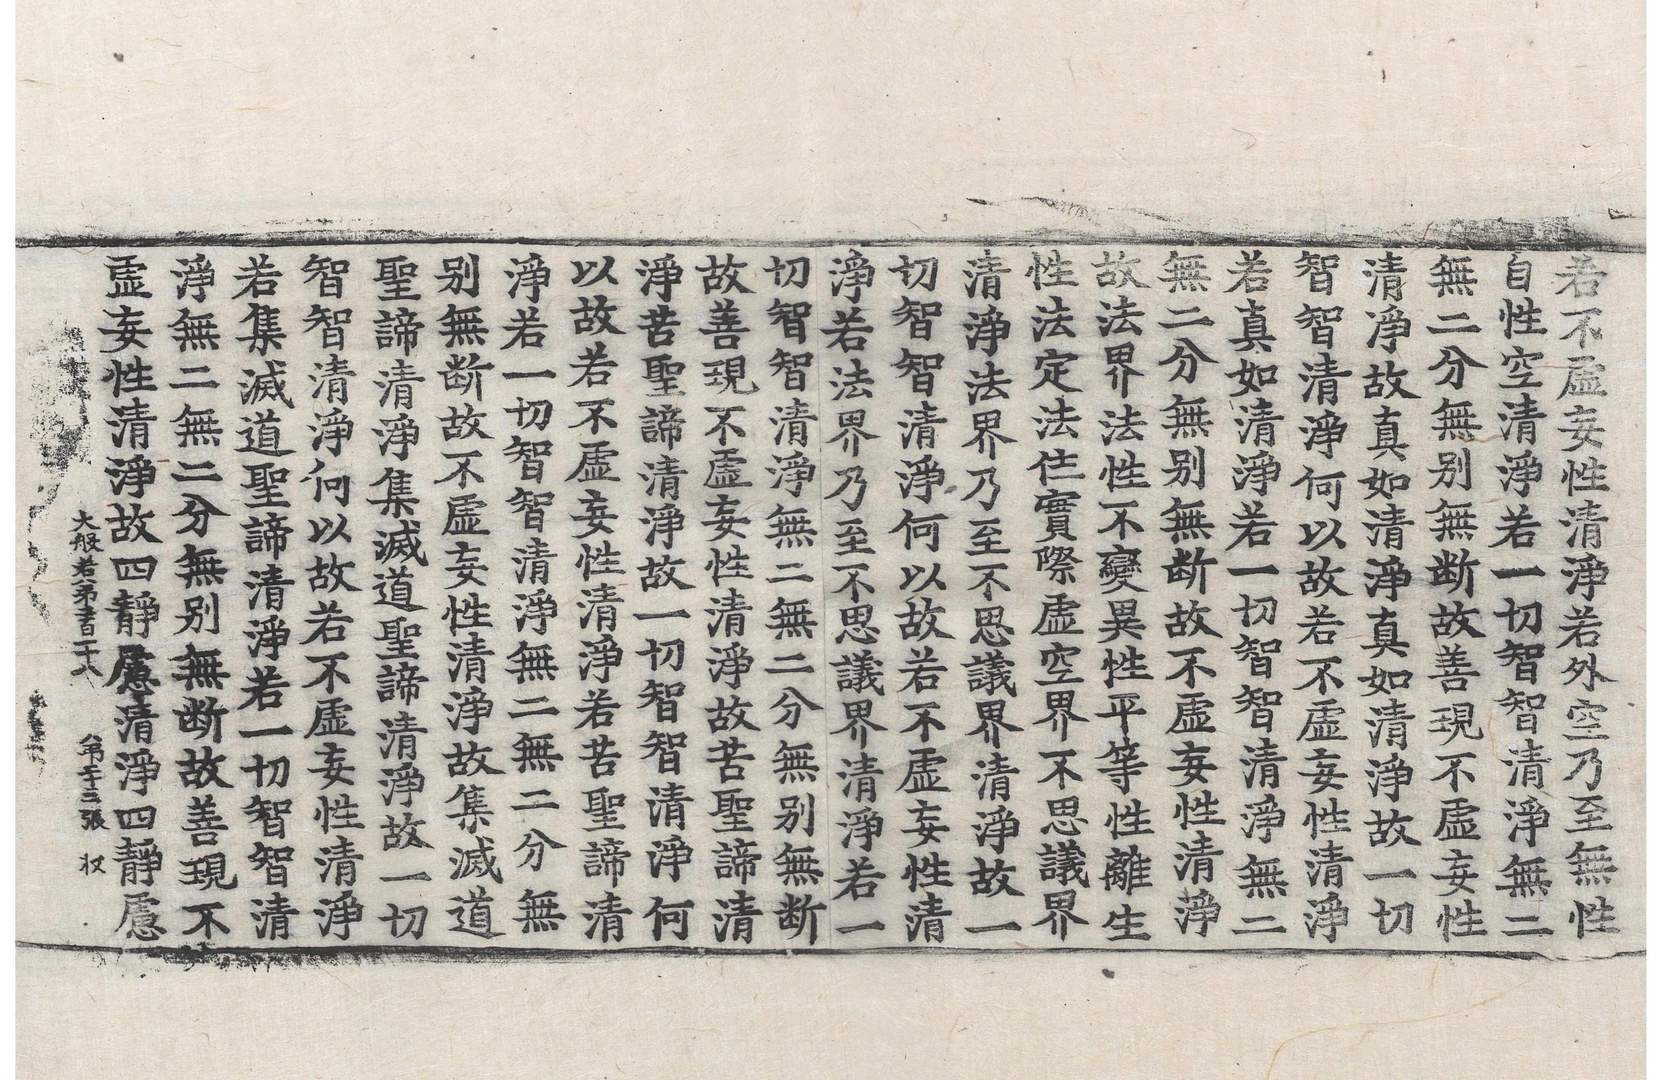 若不虛妄性清淨若外空乃至無性
自性空清淨若一切智智清淨無二
無二分無別無断故善現不虛妄性
清淨故真如清淨真如清淨故一切
智智清淨何以故若不虛妄性清淨
若真如清淨若一切智智清淨無二
無二分無別無断故不虛妄性清淨
故法界法性不變異性平等性離生
性法定法住實際虛空界不思議界
清淨法界乃至不思議界清淨故一
切智智清淨何以故若不虛妄性清
淨若法界乃至不思議界清淨若一
切智智清淨無二無二分無別無断
故善現不虛妄性清淨故苦聖諦清
淨苦聖諦清淨故一切智智清淨何
以故若不虛妄性清淨若苦聖諦清
淨若一切智智清淨無二無二分無
別無断故不虛妄性清淨故集滅道
聖諦清淨集滅道聖諦清淨故一切
智智清淨何以故若不虛妄性清淨
若集滅道聖諦清淨若一切智智清
淨無二無二分無別無断故善現不
虛妄性清淨故四靜慮清淨四靜慮
大般若第 十八 第 張